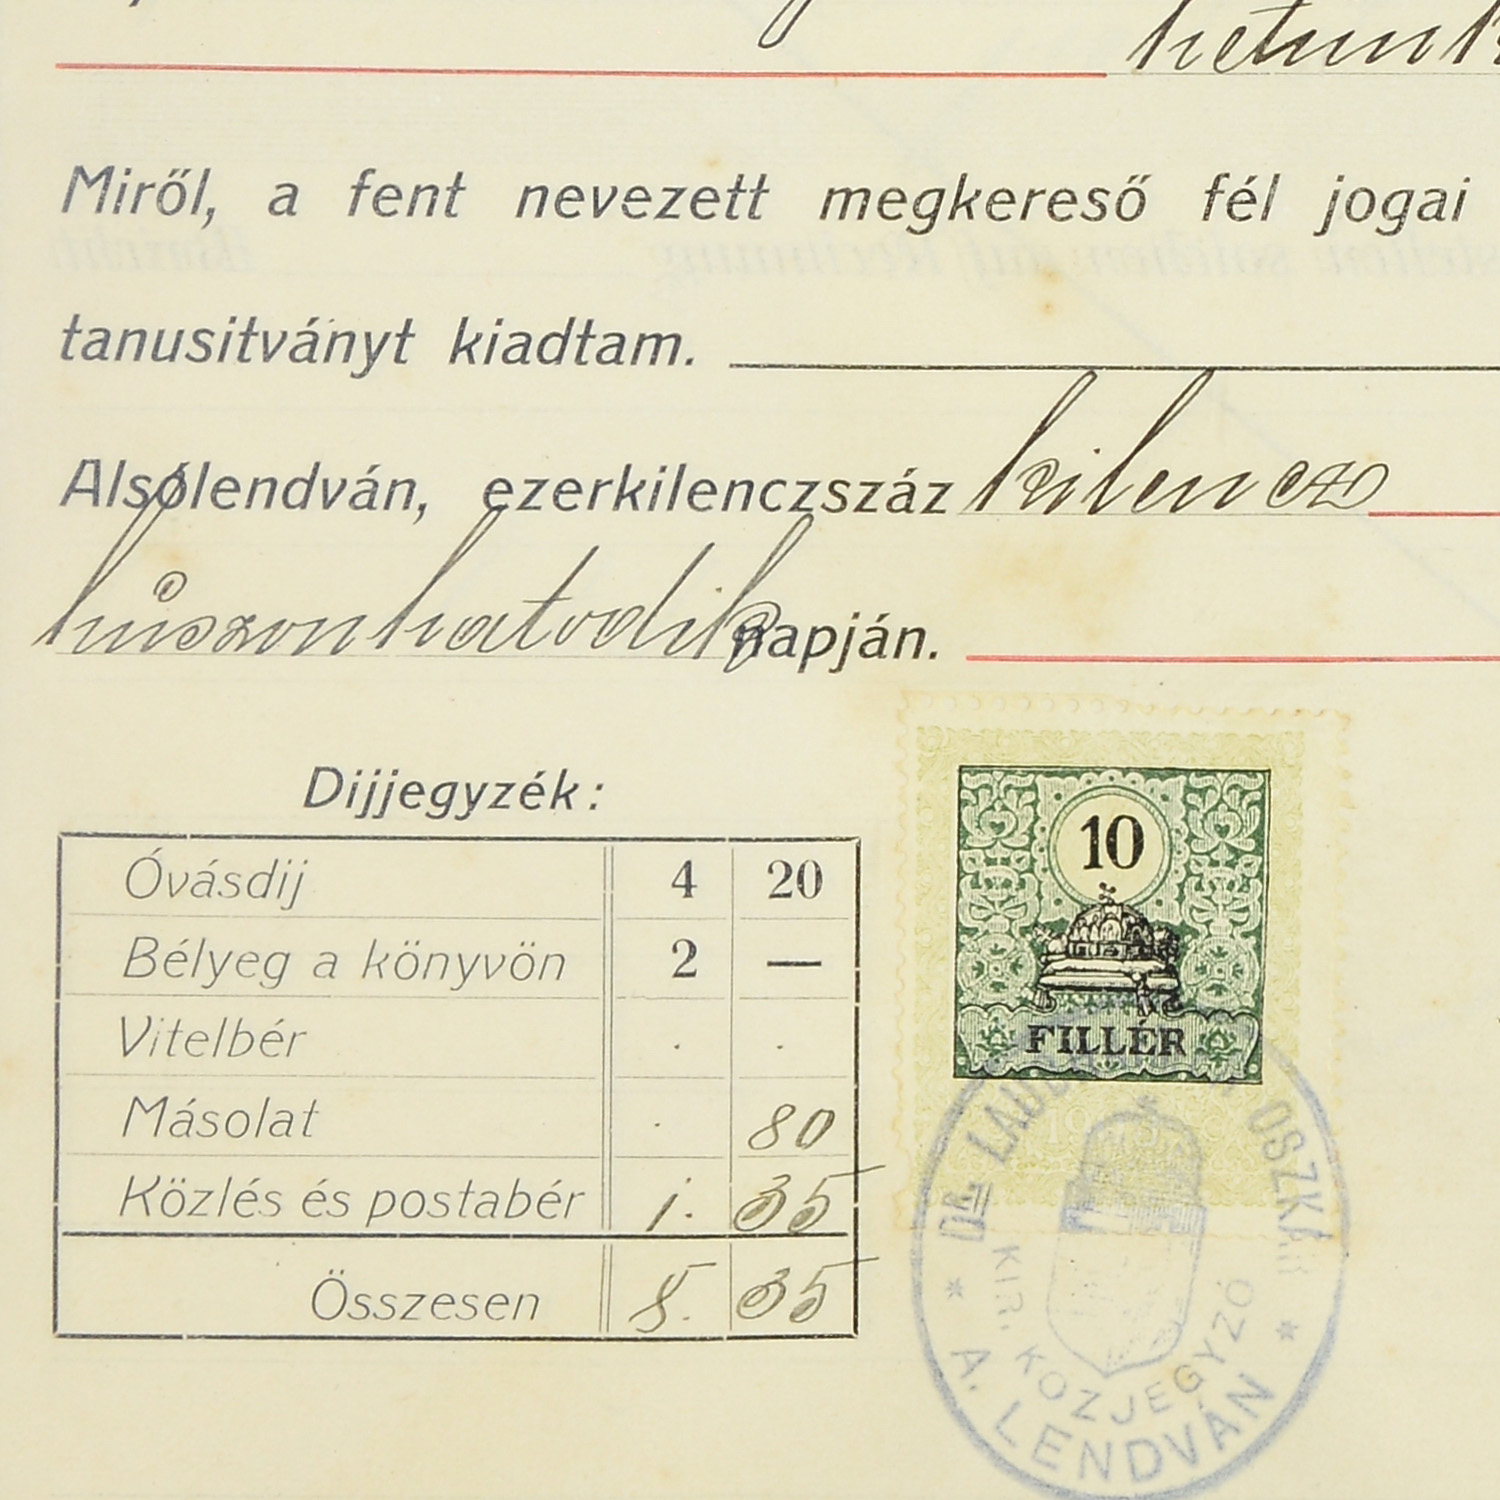 Miről, a fent nevezett megkereső fél jogai
tanusitványt kiadtam.
Alsólendván, ezerkilenczszáz kilencz
húszonhatodik napján.
Dijjegyzék:
Óvásdij 4 20
Bélyeg a könyvön 2 —
Vitelbér . .
Másolat . 80
Közlés és postabér 1. 35
Összesen 8. 35
10
FILLÉR
DR. OSZKÁR
KIR. KÖZJEGYZŐ
* A. LENDVÁN *